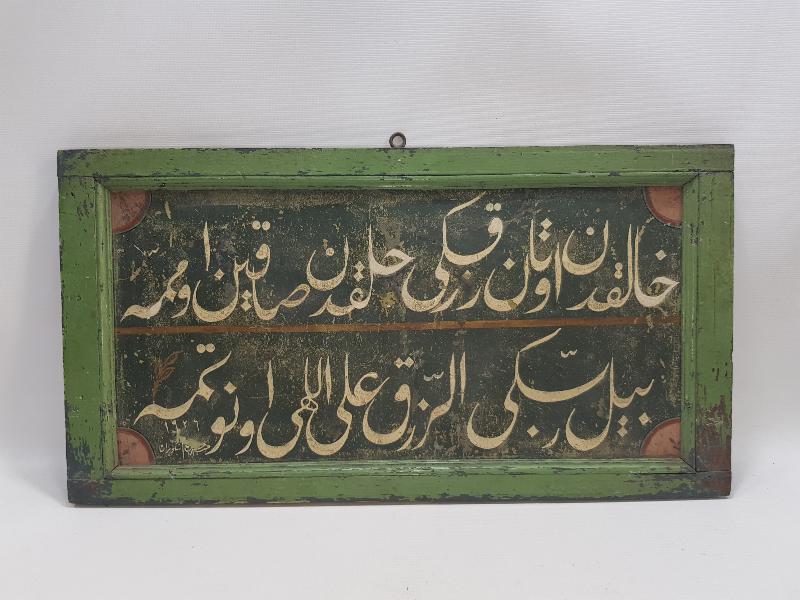 خالقدن اوتان رزقكی خلقدن صاقین اوممه
بیل ربّكی الرّزق علی اللهی اونوتمه
١٩٢٦